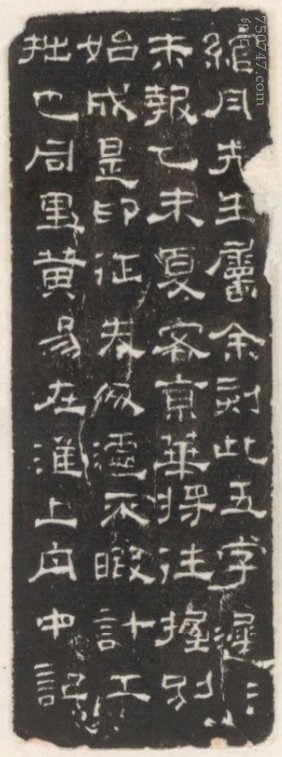 綰月先生屬余刻此五字遲〻
未報乙未夏客京華將往握別
始成是印征匆遽不暇計工
拙也同里黃易在淮上舟中記
750747.com